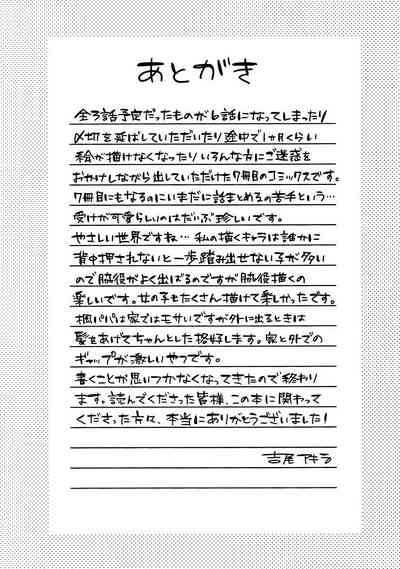 あとがき
全3話予定だったものが6話になってしまったり
〆切を延ばしていただいたり途中で1ヶ月くらい
絵が描けなくなったりいろんな方にご迷惑を
おかけしながら出していただけた7冊目のコミックスです。
7冊目にもなるのにいまだに話まとめるの苦手という…
受けが可愛らしいのはだいぶ珍しいです。
やさしい世界ですね… 私の描くキャラは誰かに
背中押されないと一歩踏み出せない子が多い
ので脇役がよく出ばるのですが脇役描くの
楽しいです。女の子もたくさん描けて楽しかったです。
楓パパは家ではモサいですが外に出るときは
髪をあげてちゃんとした格好します。家と外での
ギャップが激しいやつです。
書くことが思いつかなくなってきたので終わり
ます。読んでくださった皆様、この本に関わって
くださった方々、本当にありがとうございました!
吉尾アキラ